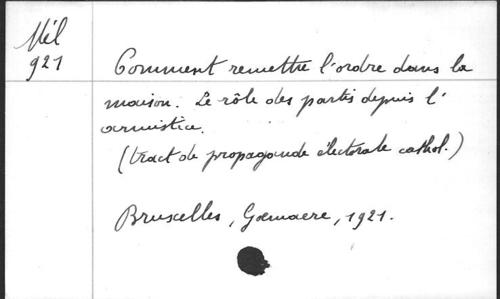 Mél
921
Comment remettre l'ordre dans la
maison. Le rôle des partis depuis l'
armistice.
(tract de propagande électorale cathol.)
Bruxelles, Goemaere, 1921.